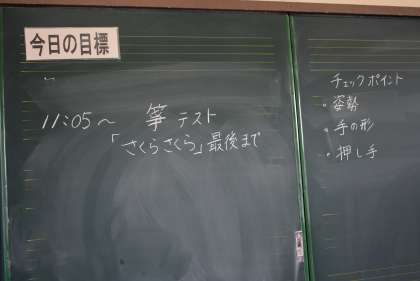 今日の目標
11:05〜 箏 テスト
「さくらさくら」最後まで
チェックポイント
・姿勢
・手の形
・押し手